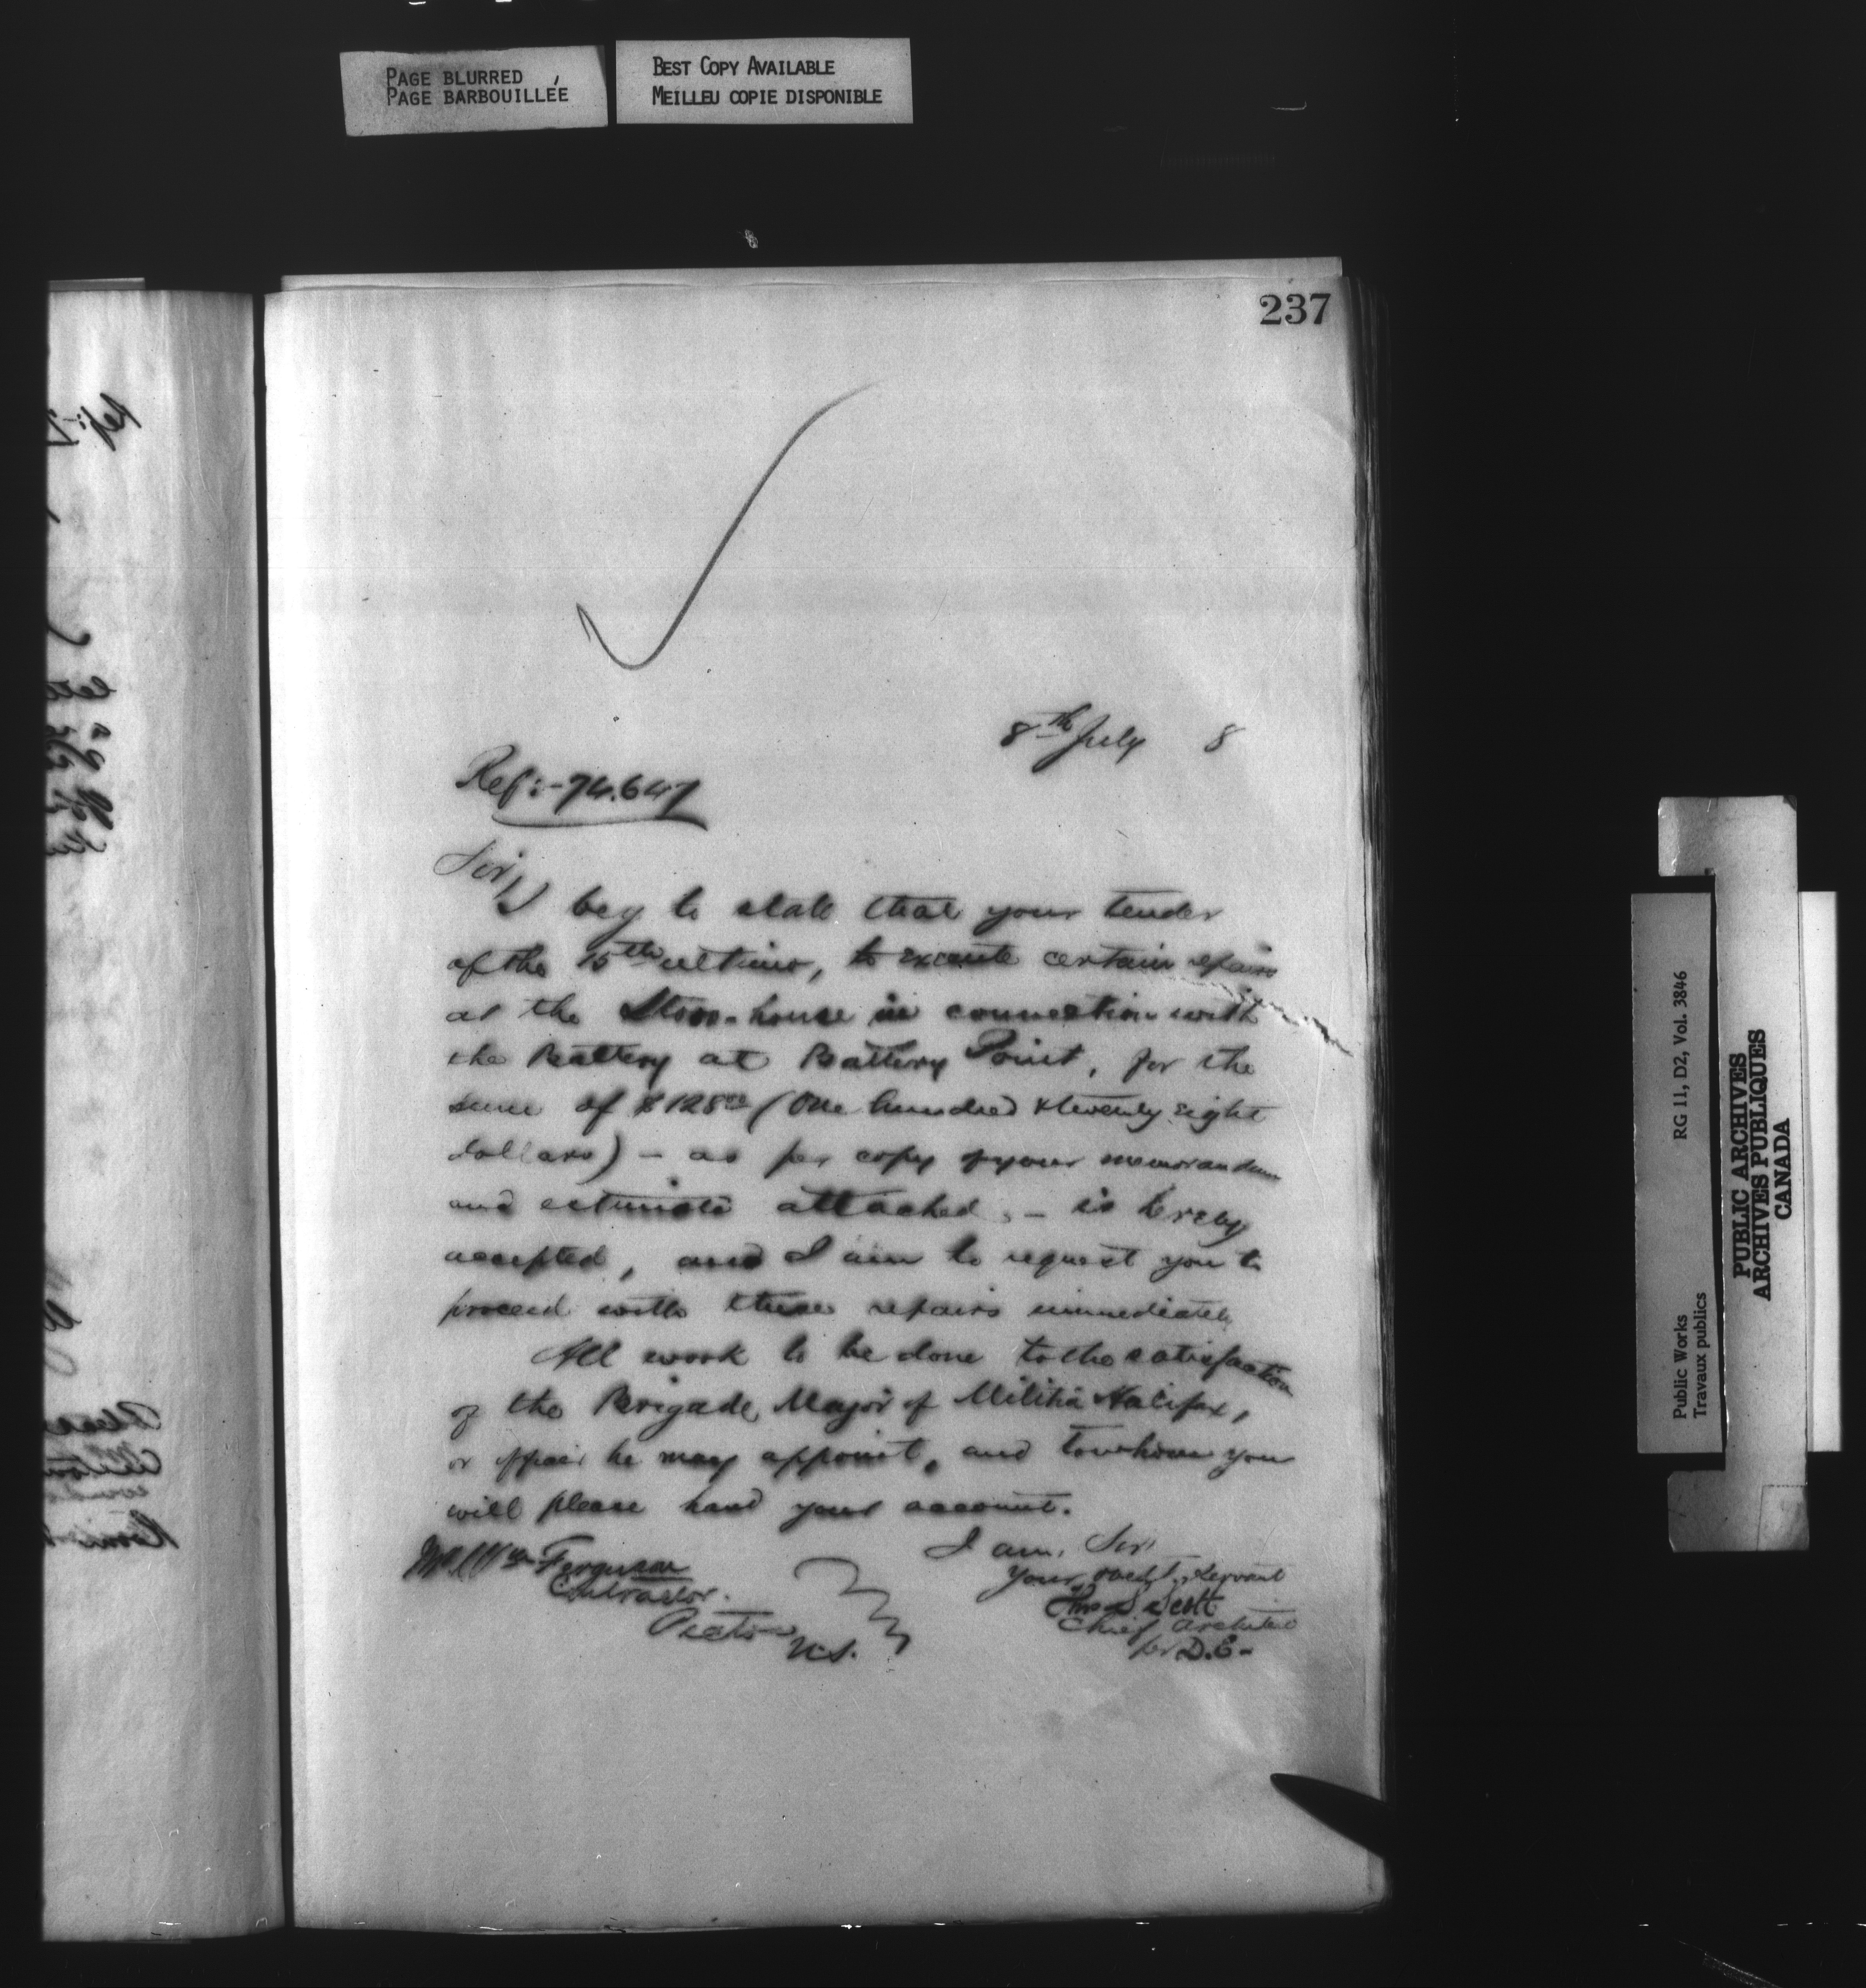 PAGE BLURRED
PAGE BARBOUILLÉE
BEST COPY AVAILABLE
MEILLEU COPIE DISPONIBLE
237
8th July 8
Ref:- 74.647
Sir,
I beg to state that your tender
of the 15th ultimo, to execute certain repairs
at the Store-house in connection with
the Battery at Battery Point, for the
sum of $128 00 (One hundred & twenty eight
dollars) - as per copy of your memorandum
and estimate attached, - is hereby
accepted, and I am to request you to
proceed with these repairs immediately
All work to be done to the satisfaction
of the Brigade Major of Militia Halifax,
or officer he may appoint, and to whom you
will please hand your account.
I am, Sir,
Your obedt. Servant
Thos S Scott
Chief Architect
per D.E-
Mr. Wm Ferguson
Contractor.
Pictou
N.S.
Public Works
Travaux publics
RG 11, D2, Vol. 3846
PUBLIC ARCHIVES
ARCHIVES PUBLIQUES
CANADA